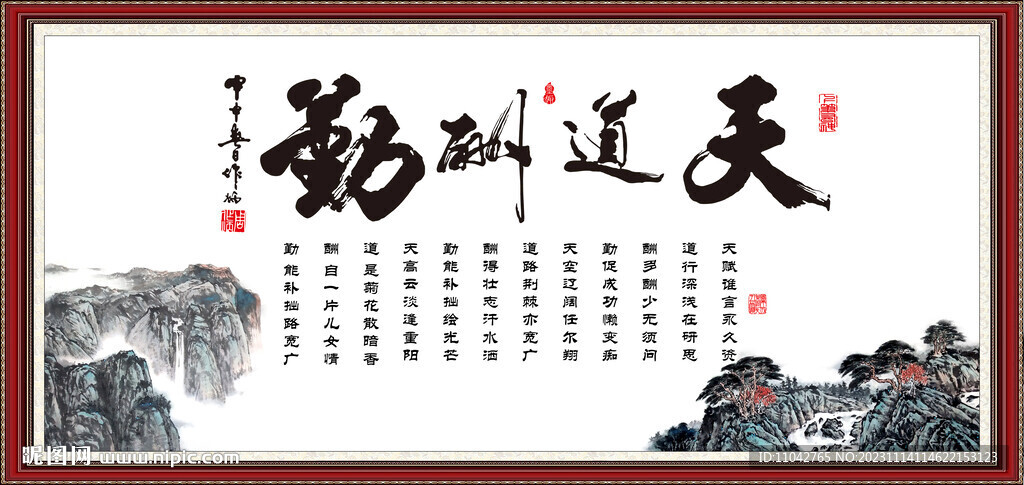 天道酬勤
天赋谁言永久资
道行深浅在研思
酬多酬少无须问
勤促成功懒变痴
天空辽阔任尔翔
道路荆棘亦宽广
酬得壮志汗水洒
勤能补拙绘光芒
天高云淡逢重阳
道是菊花散暗香
酬自一片儿女情
勤能补拙路宽广
昵图网 www.nipic.com
ID:11042765 NO:20231114114622153123